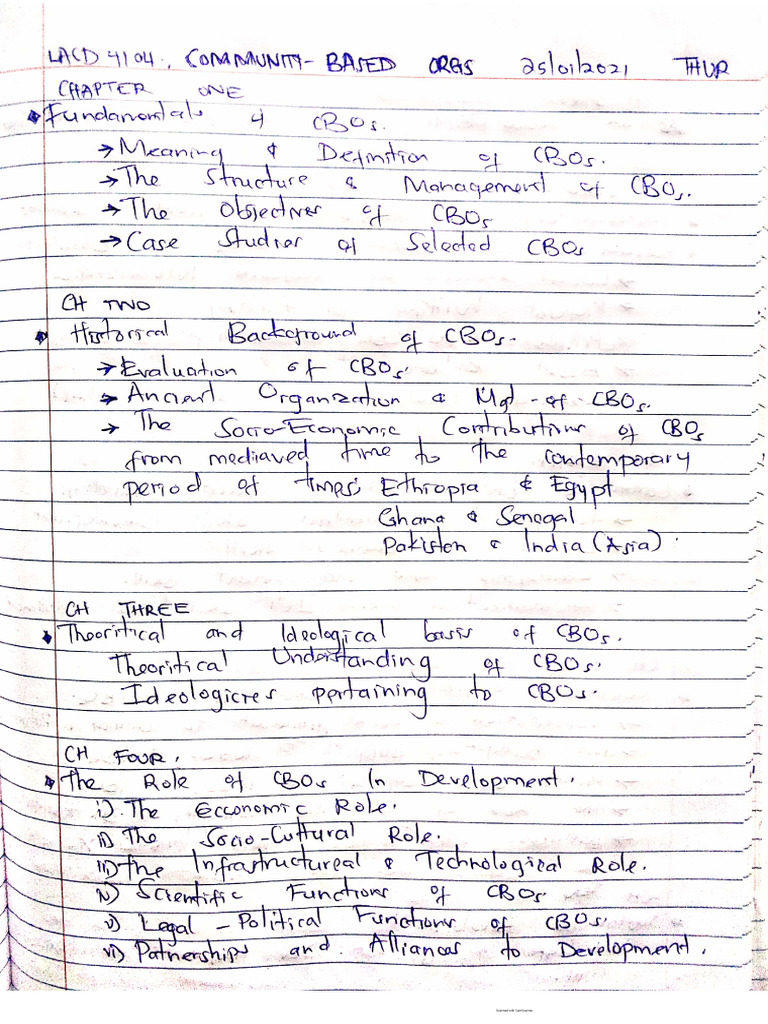 LACD 4104, COMMUNITY-BASED ORGS 25/01/2021 THUR
CHAPTER ONE
Fundamentals of CBOs.
→ Meaning & Definition of CBOs.
→ The Structure & Management of CBOs.
→ The Objectives of CBOs
→ Case Studies of Selected CBOs
CH TWO
Historical Background of CBOs.
→ Evaluation of CBOs.
→ Ancient Organization & Mgt - of CBOs.
→ The Socio-Economic Contributions of CBOs
from mediaved time to the contemporary
period of times; Ethiopia & Egypt
Ghana & Senegal
Pakistan & India (Asia).
CH THREE
Theoritical and Ideological basis of CBOs.
Theoritical Understanding of CBOs.
Ideologicies pertaining to CBOs.
CH FOUR.
The Role of CBOs In Development.
i). The Ecconomic Role.
ii) The Socio-Cultural Role.
iii) The Infrastructureal & Technological Role.
iv) Scientific Functions of CBOs
v) Legal - Political Functions of CBOs.
vi) Patnerships and Alliances to Development.
Scanned with CamScanner